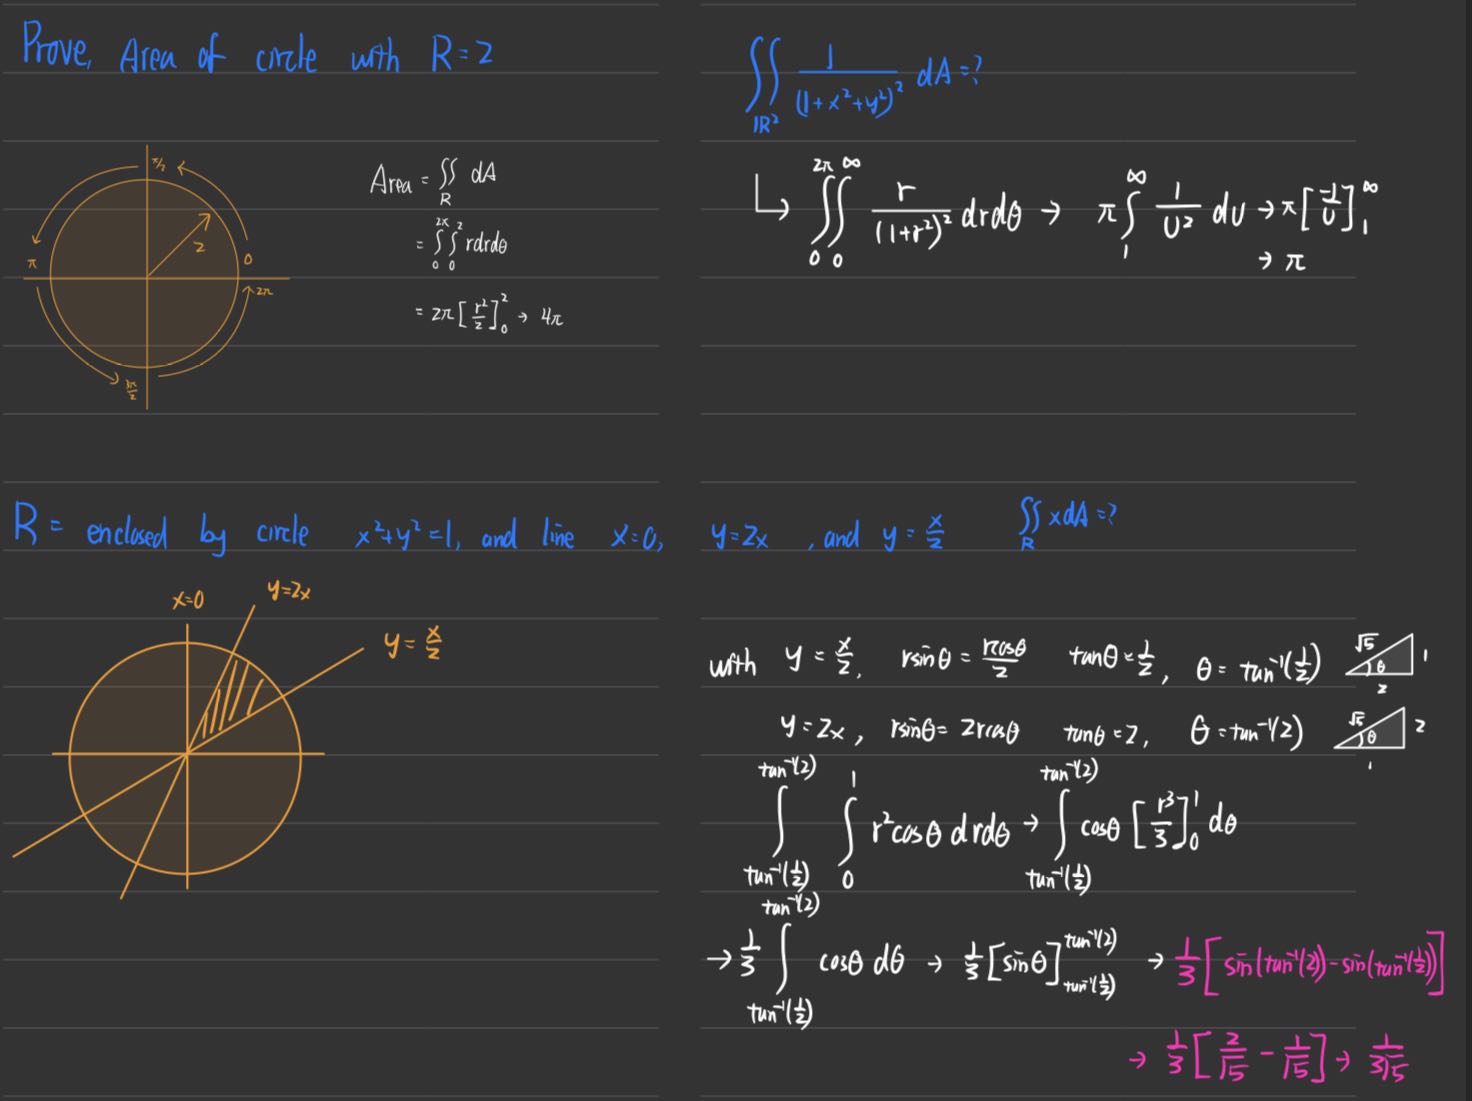 Prove, Area of circle with R=2
π/2
2
π
0
2π
3π/2
Area = ∬_R dA
= ∫_0^{2π} ∫_0^2 rdrdθ
= 2π [r²/2]_0^2 → 4π
∬_{ℝ²} 1/(1+x²+y²)² dA = ?
↳ ∫_0^{2π} ∫_0^∞ r/(1+r²)² drdθ → π ∫_1^∞ 1/U² dU → π [-1/U]_1^∞
→ π
R = enclosed by circle x²+y²=1, and line x=0, y=2x, and y = x/2 ∬_R xdA = ?
x=0
y=2x
y = x/2
with y = x/2, rsinθ = rcosθ/2 tanθ = 1/2, θ = tan⁻¹(1/2) √5 θ 1 2
y = 2x, rsinθ = 2rcosθ tanθ = 2, θ = tan⁻¹(2) √5 θ 2 1
∫_{tan⁻¹(1/2)}^{tan⁻¹(2)} ∫_0^1 r²cosθ drdθ → ∫_{tan⁻¹(1/2)}^{tan⁻¹(2)} cosθ [r³/3]_0^1 dθ
→ 1/3 ∫_{tan⁻¹(1/2)}^{tan⁻¹(2)} cosθ dθ → 1/3 [sinθ]_{tan⁻¹(1/2)}^{tan⁻¹(2)} → 1/3 [sin(tan⁻¹(2)) - sin(tan⁻¹(1/2))]
→ 1/3 [2/√5 - 1/√5] → 1/3√5